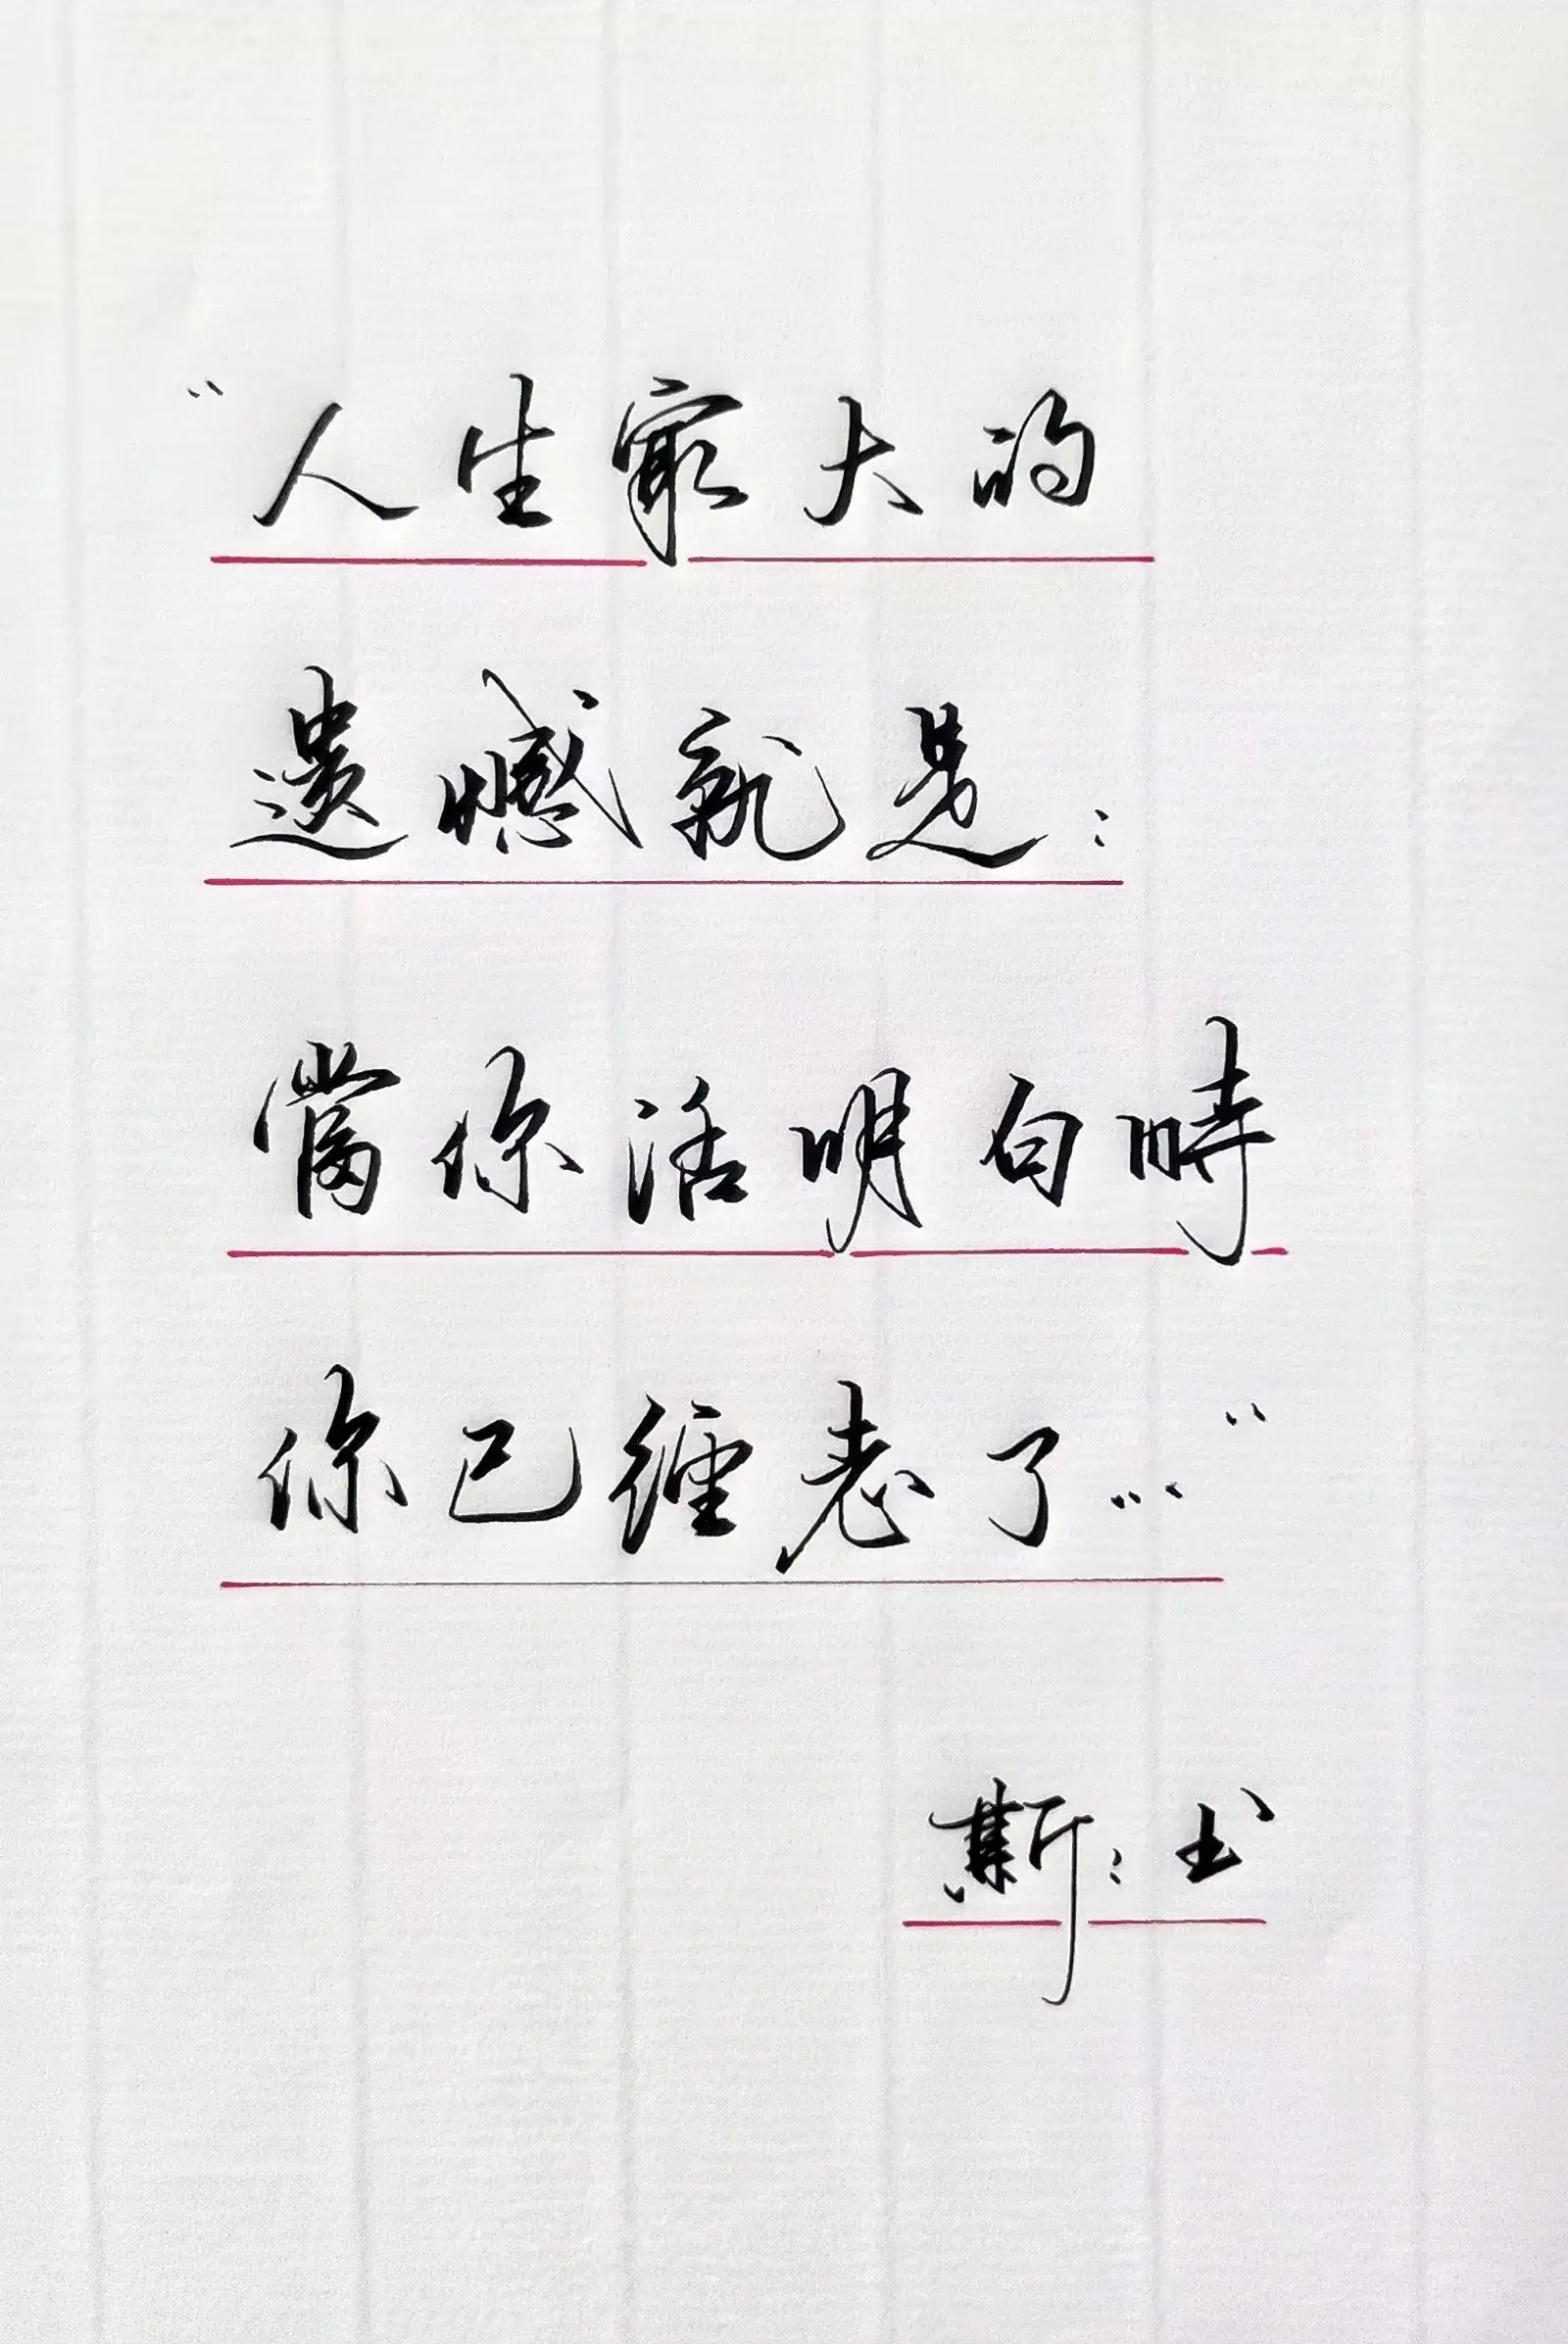 “人生最大的
遗憾就是：
當你活明白時
你已經老了…”
斯：书